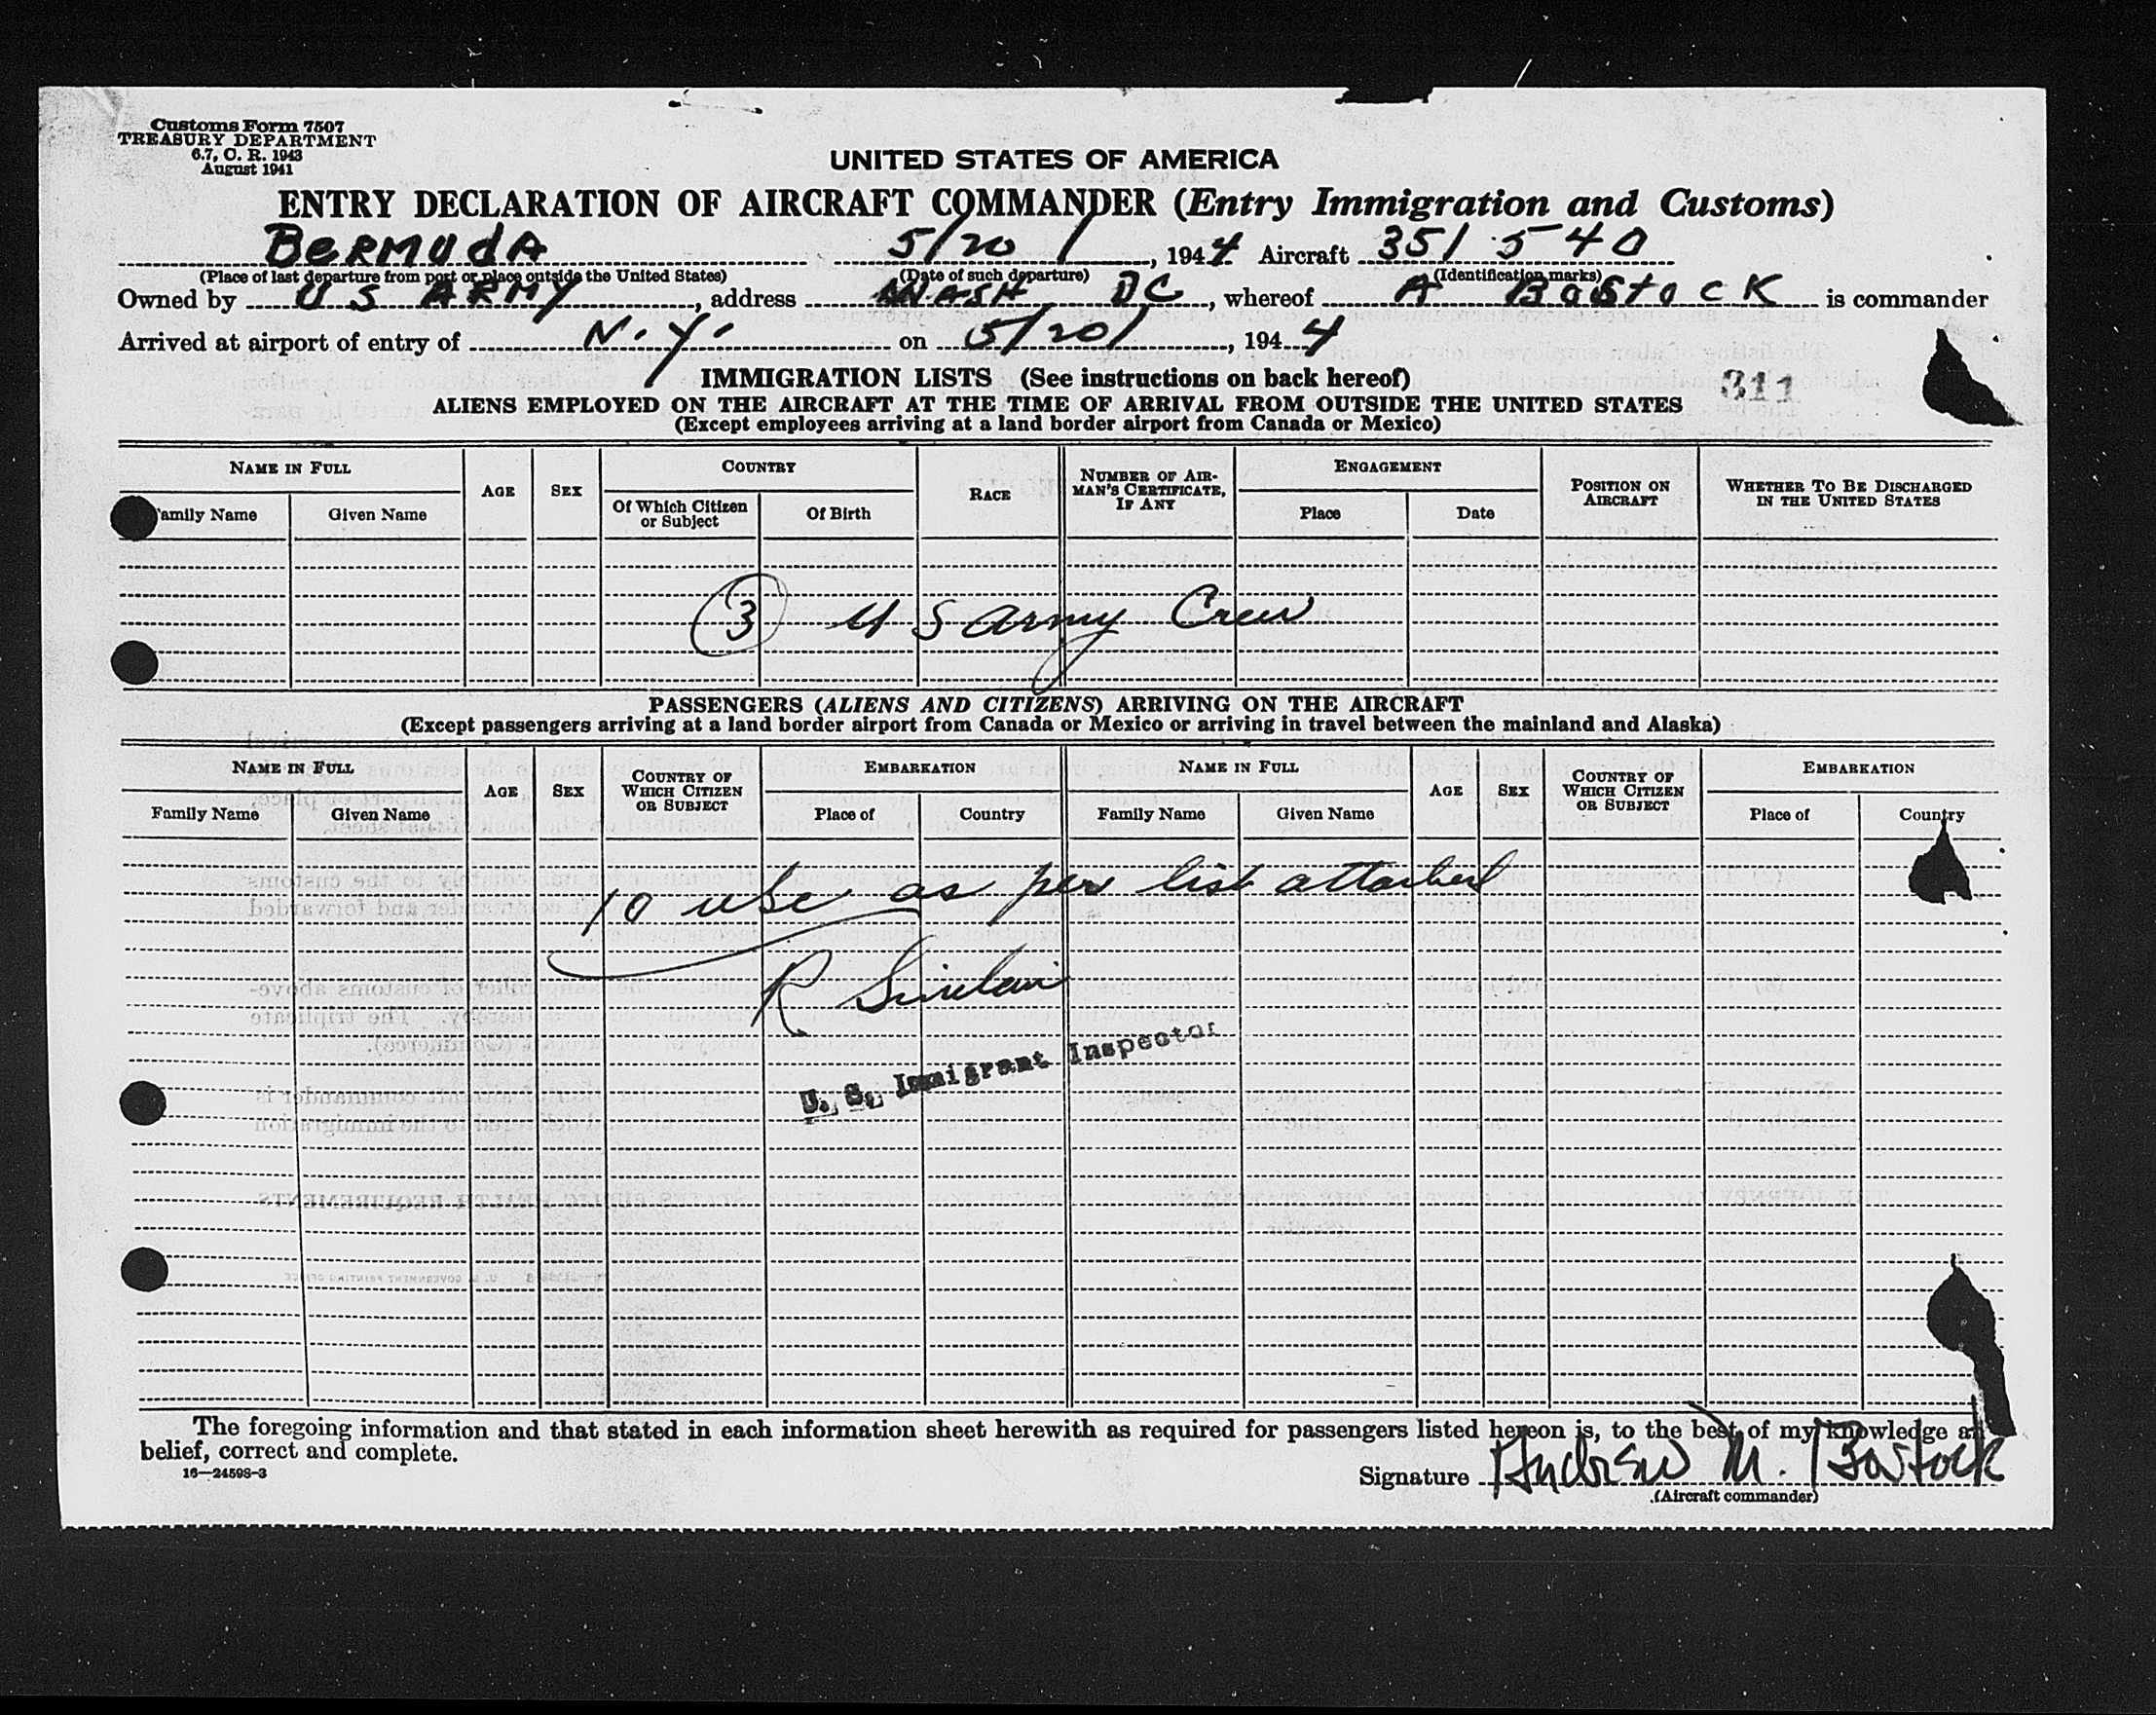 Customs Form 7507
TREASURY DEPARTMENT
6.7, C. R. 1943
August 1941
UNITED STATES OF AMERICA
ENTRY DECLARATION OF AIRCRAFT COMMANDER (Entry Immigration and Customs)
BERMUdA 5/20/, 1944 Aircraft 351540
(Place of last departure from port or place outside the United States) (Date of such departure) (Identification marks)
Owned by US ARMY, address WASH DC, whereof A Bostock is commander
Arrived at airport of entry of N.Y. on 5/20/, 1944
IMMIGRATION LISTS (See instructions on back hereof)
311
ALIENS EMPLOYED ON THE AIRCRAFT AT THE TIME OF ARRIVAL FROM OUTSIDE THE UNITED STATES
(Except employees arriving at a land border airport from Canada or Mexico)
NAME IN FULL AGE SEX COUNTRY RACE NUMBER OF AIRMAN'S CERTIFICATE, IF ANY ENGAGEMENT POSITION ON AIRCRAFT WHETHER TO BE DISCHARGED IN THE UNITED STATES
Family Name Given Name Of Which Citizen or Subject Of Birth Place Date
3 US Army Crew
PASSENGERS (ALIENS AND CITIZENS) ARRIVING ON THE AIRCRAFT
(Except passengers arriving at a land border airport from Canada or Mexico or arriving in travel between the mainland and Alaska)
NAME IN FULL AGE SEX COUNTRY OF WHICH CITIZEN OR SUBJECT EMBARKATION NAME IN FULL AGE SEX COUNTRY OF WHICH CITIZEN OR SUBJECT EMBARKATION
Family Name Given Name Place of Country Family Name Given Name Place of Country
10 USC as per list attached
R Sinclair
U. S. Immigrant Inspector
The foregoing information and that stated in each information sheet herewith as required for passengers listed hereon is, to the best of my knowledge and
belief, correct and complete.
16—24598-3
Signature Andrew M. Bostock
(Aircraft commander)